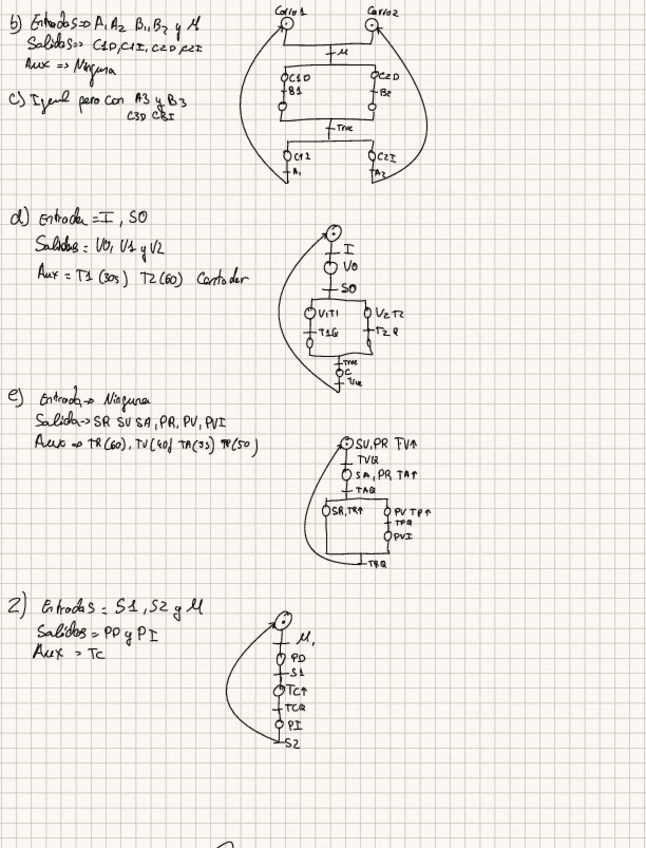 b) Entradas => A, A2 B1, B2 y M
Salidas => C1D, C1I, C2D, C2I
Aux => Ninguna
Carro1
Carro2
M
C1D
C2D
B1
B2
True
C1I
C2I
A1
A2
c) Igual pero con A3 y B3
C3D C3I
d) Entrada = I, SO
Salidas = V0, V1 y V2
Aux = T1 (30s) T2 (60) Contador
I
V0
SO
V1T1
V2T2
T1Q
T2Q
True
C
True
e) Entrada -> Ninguna
Salida -> SR SV SA, PR, PV, PVI
Aux => TR(60), TV(40) TA(3s) TP(50)
SV, PR TV↑
TVQ
SA, PR, TA↑
TAQ
SR, TR↑
PV TP↑
TPQ
PVI
TRQ
2) Entradas = S1, S2 y M
Salidas = PD y PI
Aux = TC
M,
PD
S1
TC↑
TCQ
PI
S2